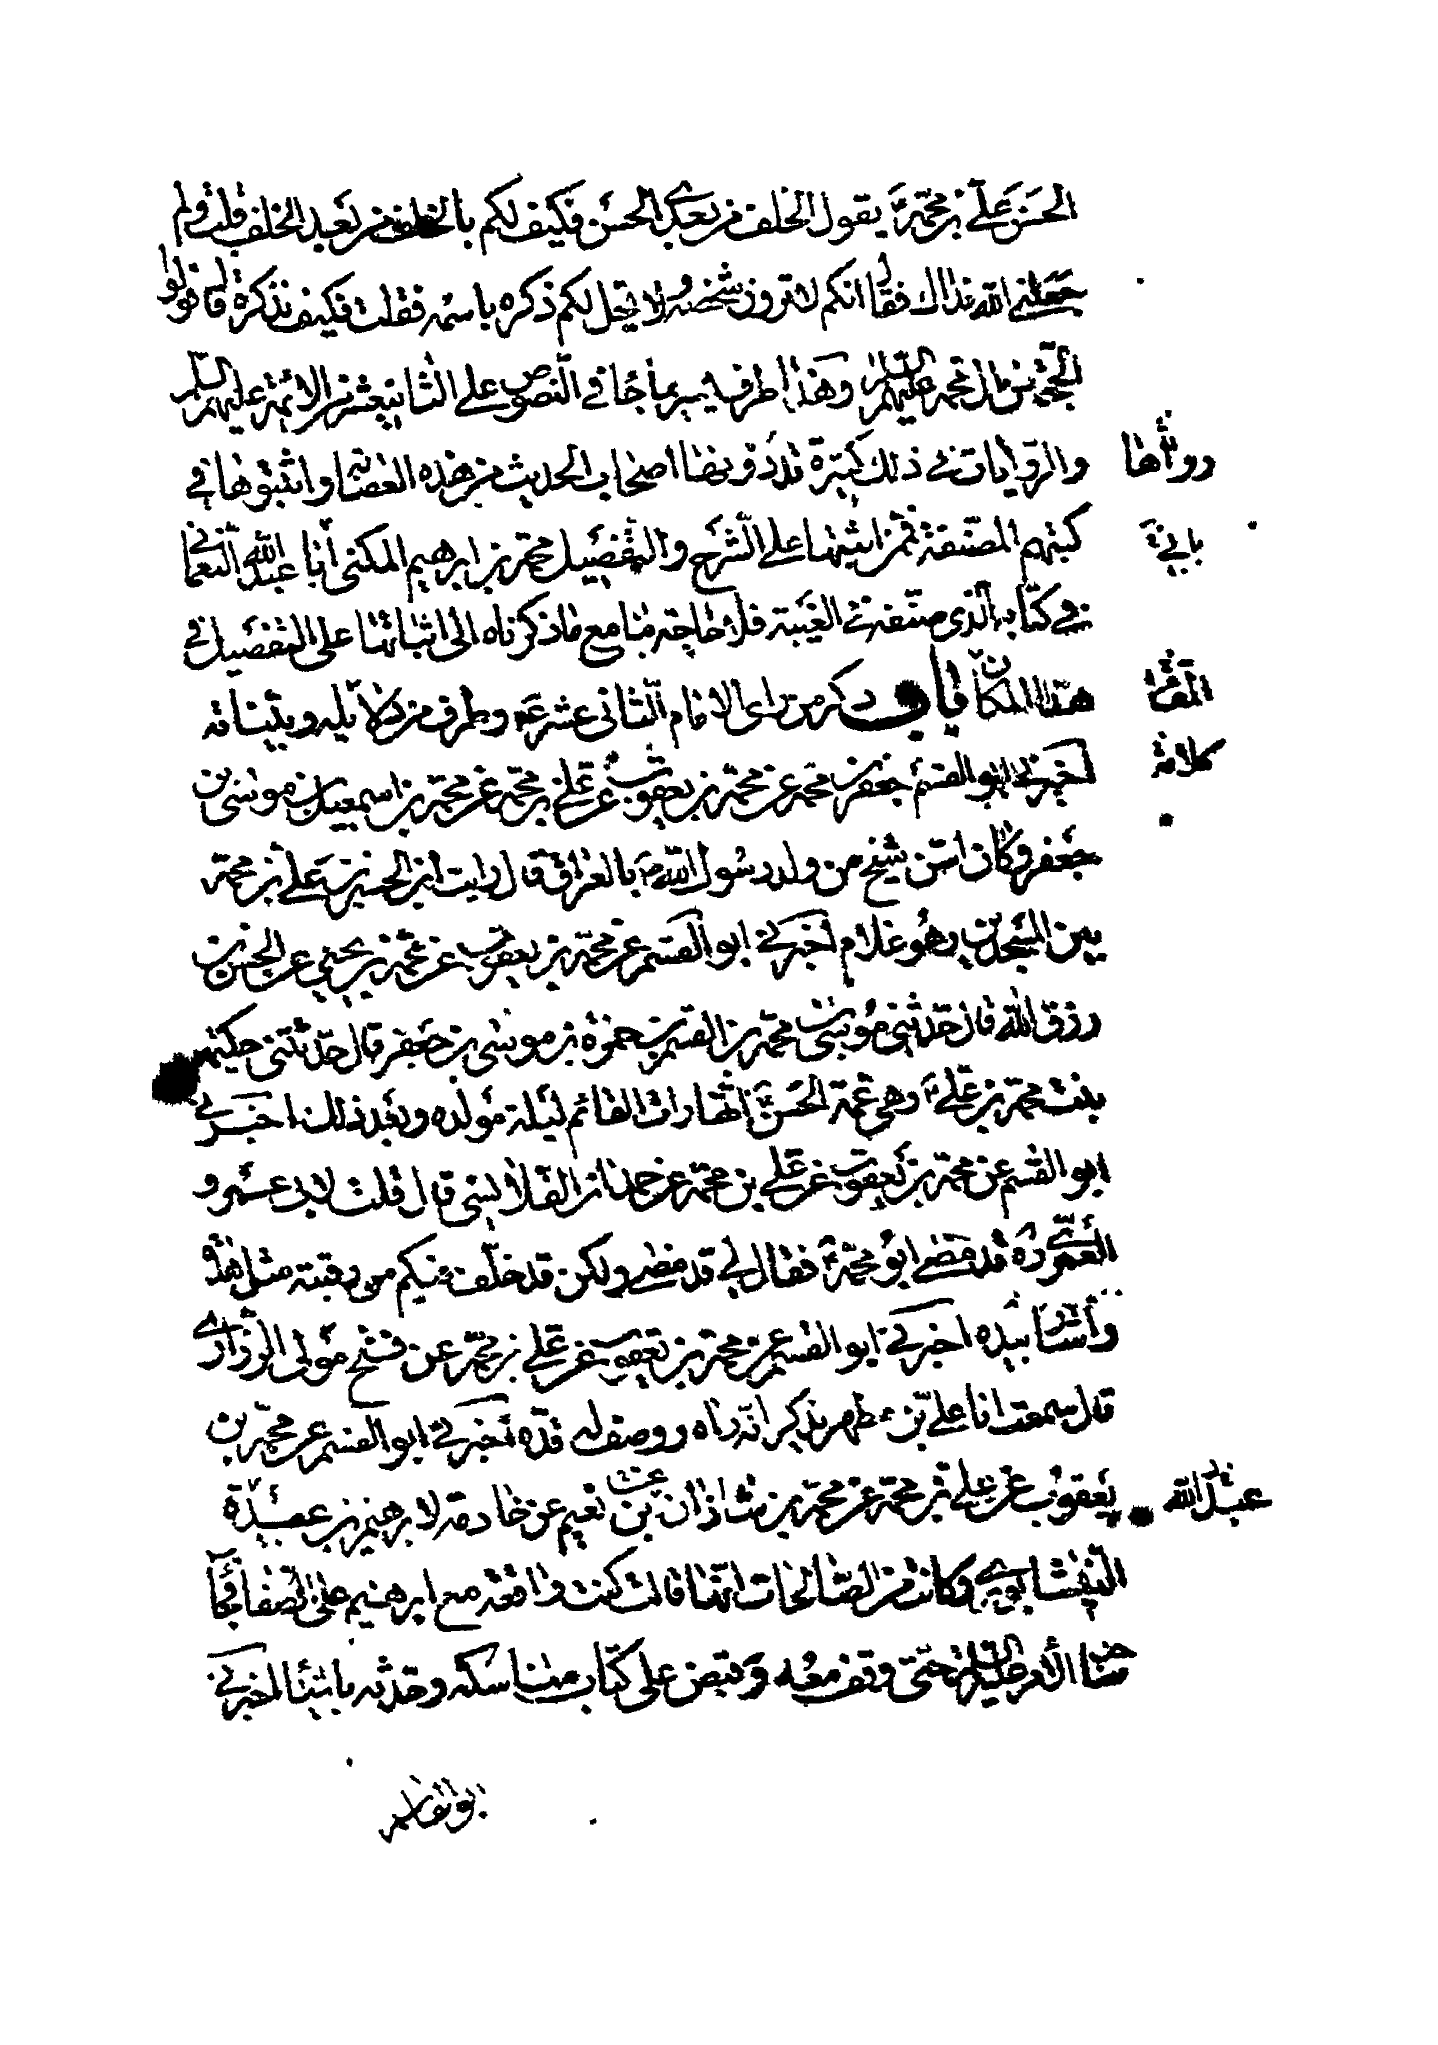 الحسن علي بن محمد يقول الخلف من بعدي الحسن فكيف لكم بالخلف من بعد الخلف قلت ولم
جعلني الله فداك فقال انكم لا ترون شخصه ولا يحل لكم ذكره باسمه فقلت فكيف نذكره قال قولوا
الحجة من ال محمد عليهم السلام وهذا طرف يسير مما جا في النصوص على الثاني عشر من الائمة عليهم السلام
والروايات في ذلك كثيرة قد دونها اصحاب الحديث من هذه العصابة واثبتوها في
كتبهم المصنفة فمن اثبتها على الشرح والتفصيل محمد بن ابرهيم المكنى أبا عبد الله النعماني
في كتابه الذي صنفه في الغيبة فلا حاجة بنا مع ما ذكرناه الى اثباتها على التفصيل في
هذا المكان باب ذكر من راى الامام الثاني عشر وطرف من دلايله وبيناته
اخبرني ابو القسم جعفر بن محمد عن محمد بن يعقوب عن علي بن محمد عن محمد بن اسمعيل بن موسى بن
جعفر وكان اسن شيخ من ولد رسول الله بالعراق قال رايت ابن الحسن بن علي بن محمد
بين المسجدين وهو غلام اخبرني ابو القسم عن محمد بن يعقوب عن محمد بن يحيى عن الحسن بن
رزق الله قال حدثني موسى بن محمد بن القسم بن حمزة بن موسى بن جعفر قال حدثتني حكيمة
بنت محمد بن علي وهي عمة الحسن انها رات القائم ليلة مولده وبعد ذلك اخبرني
ابو القسم عن محمد بن يعقوب عن علي بن محمد عن حمدان القلانسي قال قلت لابي عمرو
العمري ره قد مضى ابو محمد فقال لي قد مضى ولكن قد خلف فيكم من رقبته مثل هذه
وأشار بيده اخبرني ابو القسم عن محمد بن يعقوب عن علي بن محمد عن فتح مولى الزراري
قال سمعت ابا علي بن مطهر يذكر انه راه ووصف له قده أخبرني ابو القسم عن محمد بن
يعقوب عن علي بن محمد عن محمد بن شاذان بن نعيم عن خادمة لابرهيم بن عبدة
النيشابوري وكانت من الصالحات انها قالت كنت واقفة مع ابرهيم على الصفا فجآ
صاحب الأمر حتى وقف معه وقبض على كتاب مناسكه وحدثه باشيا اخبرني
ابو القاسم
رواتها
بابي
عبد الله